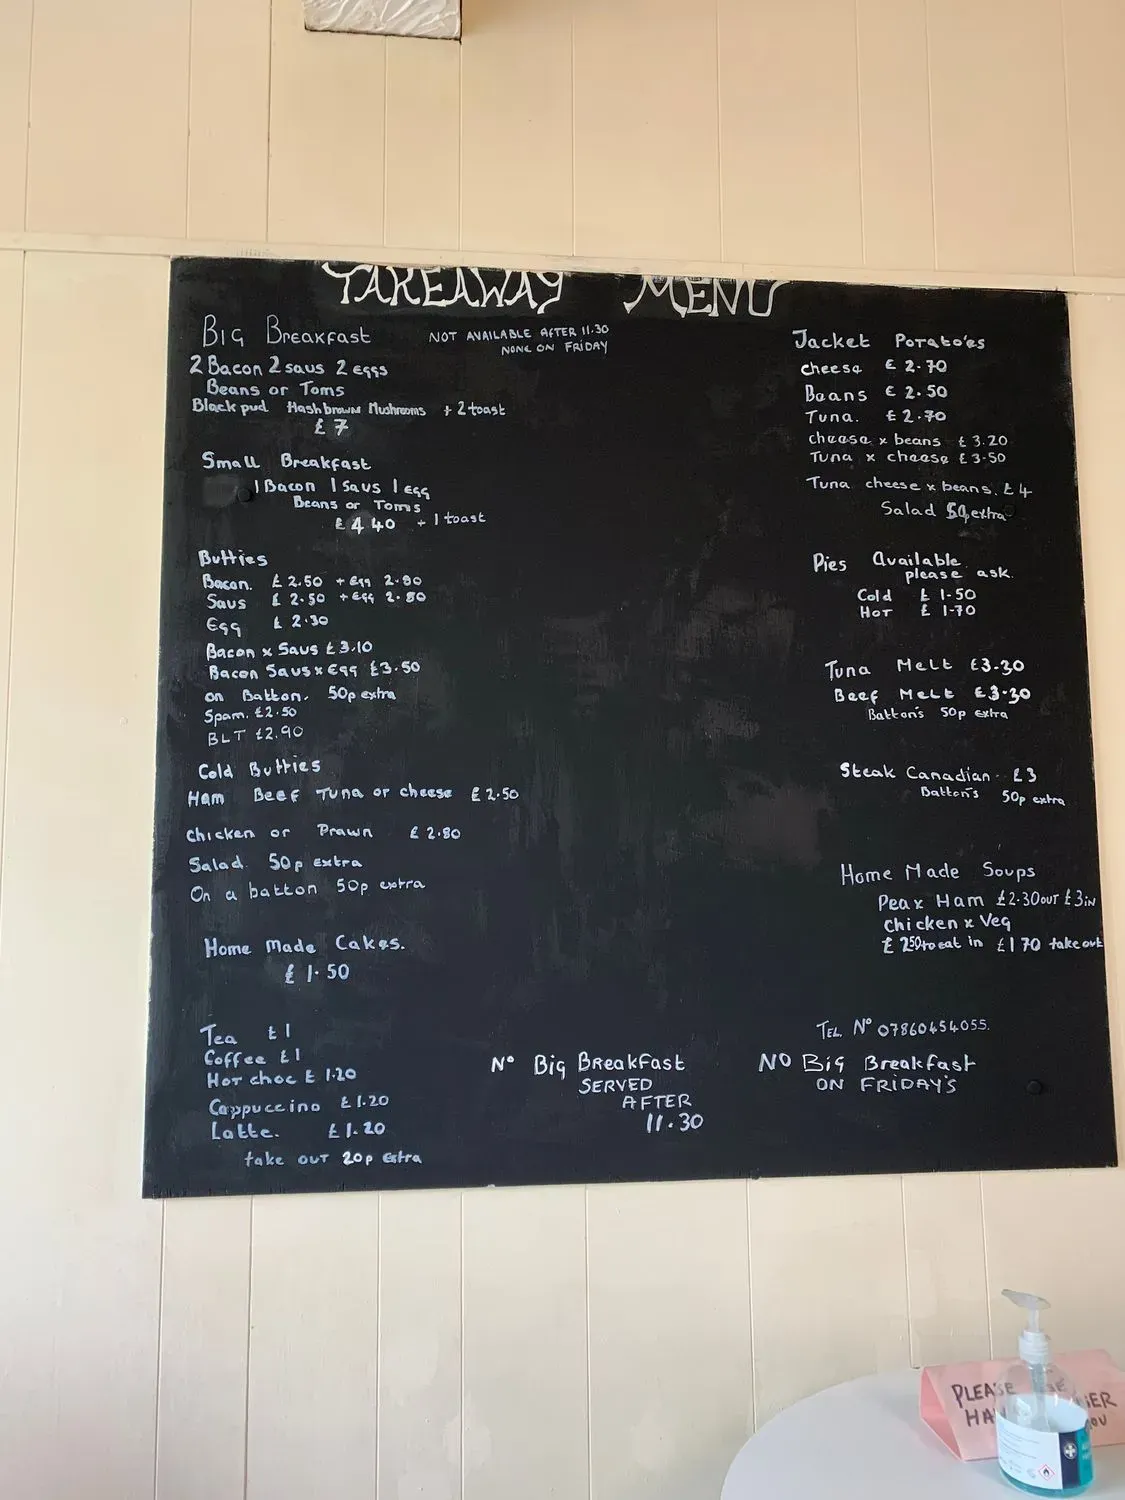 TAKEAWAY MENU
Big Breakfast NOT AVAILABLE AFTER 11.30
NONE ON FRIDAY
2 Bacon 2 saus 2 eggs
Beans or Toms
Black pud Hash browns Mushrooms + 2 toast
£7
Small Breakfast
1 Bacon 1 Saus 1 egg
Beans or Toms
£4 40 + 1 toast
Butties
Bacon. £2.50 + Egg 2.80
Saus £2.50 + Egg 2.80
Egg £2.30
Bacon x Saus £3.10
Bacon Saus x Egg £3.50
on Batton. 50p extra
Spam. £2.50
BLT £2.90
Cold Butties
Ham Beef Tuna or cheese £2.50
Chicken or Prawn £2.80
Salad 50p extra
On a batton 50p extra
Home made Cakes.
£1.50
Tea £1
Coffee £1
Hot choc £1.20
Cappuccino £1.20
Latte. £1.20
take out 20p extra
Nº Big Breakfast
SERVED
AFTER
11.30
Jacket Potato'es
cheese £2.70
Beans £2.50
Tuna. £2.70
cheese x beans £3.20
Tuna x cheese £3.50
Tuna cheese x beans. £4
Salad extra
Pies Available
please ask.
Cold £1-50
Hot £1-70
Tuna Melt £3.30
Beef Melt £3.30
Batton's 50p extra
Steak Canadian. £3
Batton's 50p extra
Home Made Soups
Pea x Ham £2.30 out £3 in
chicken x Veg
£2.50 to eat in £1 70 take out
TEL. Nº 07860454055.
NO Big Breakfast
ON FRIDAY'S
PLEASE